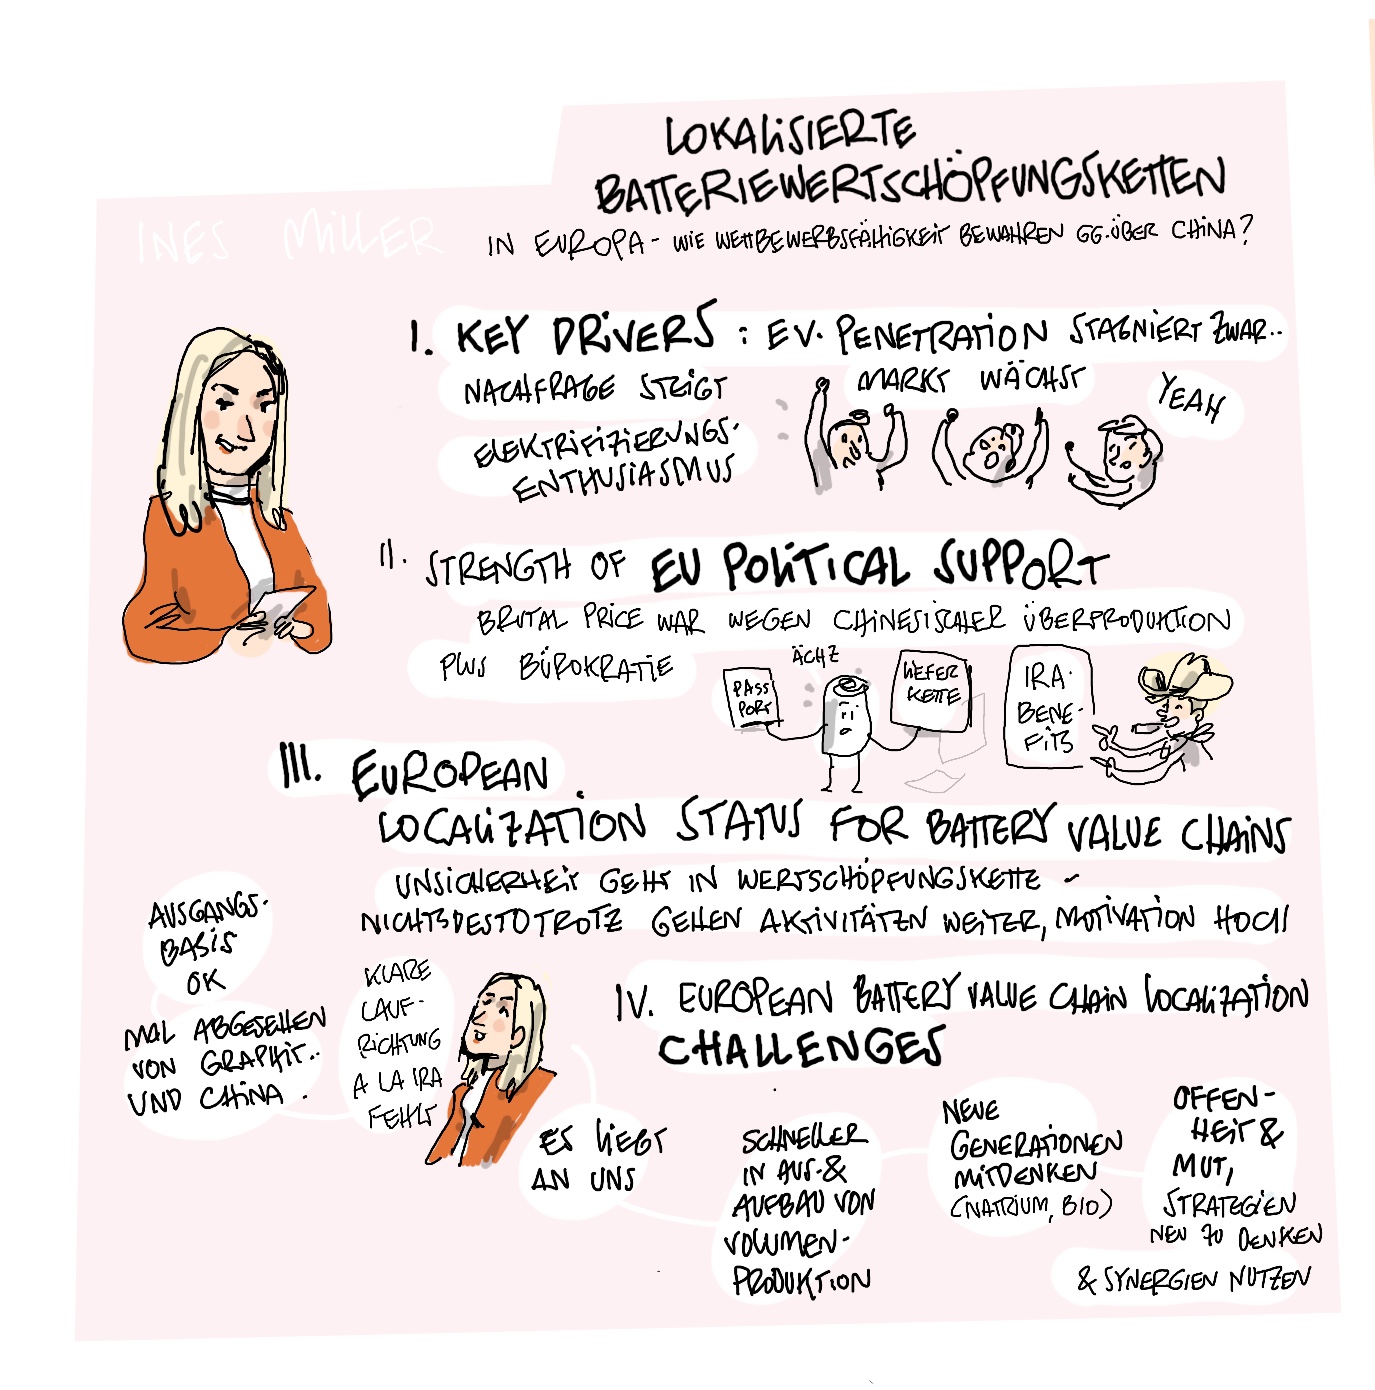 LOKALISIERTE
BATTERIEWERTSCHÖPFUNGSKETTEN
INES MILLER
IN EUROPA - WIE WETTBEWERBSFÄHIGKEIT BEWAHREN GG.ÜBER CHINA?
I. KEY DRIVERS : EV. PENETRATION STAGNIERT ZWAR..
NACHFRAGE STEIGT
MARKT WÄCHST
YEAH
ELEKTRIFIZIERUNGS-
ENTHUSIASMUS
II. STRENGTH OF EU POLITICAL SUPPORT
BRUTAL PRICE WAR WEGEN CHINESISCHER ÜBERPRODUKTION
PLUS BÜROKRATIE
ÄCHZ
PASS
PORT
LIEFER
KETTE
IRA-
BENE-
FITS
III. EUROPEAN
LOCALIZATION STATUS FOR BATTERY VALUE CHAINS
UNSICHERHEIT GEHT IN WERTSCHÖPFUNGSKETTE -
NICHTSDESTOTROTZ GEHEN AKTIVITÄTEN WEITER, MOTIVATION HOCH
AUSGANGS-
BASIS
OK
MAL ABGESEHEN
VON GRAPHIT..
UND CHINA.
KLARE
LAUF-
RICHTUNG
A LA IRA
FEHLT
IV. EUROPEAN BATTERY VALUE CHAIN LOCALIZATION
CHALLENGES
ES LIEGT
AN UNS
SCHNELLER
IN AUS-&
AUFBAU VON
VOLUMEN-
PRODUKTION
NEUE
GENERATIONEN
MITDENKEN
(NATRIUM, BIO)
OFFEN-
HEIT &
MUT,
STRATEGIEN
NEU ZU DENKEN
& SYNERGIEN NUTZEN